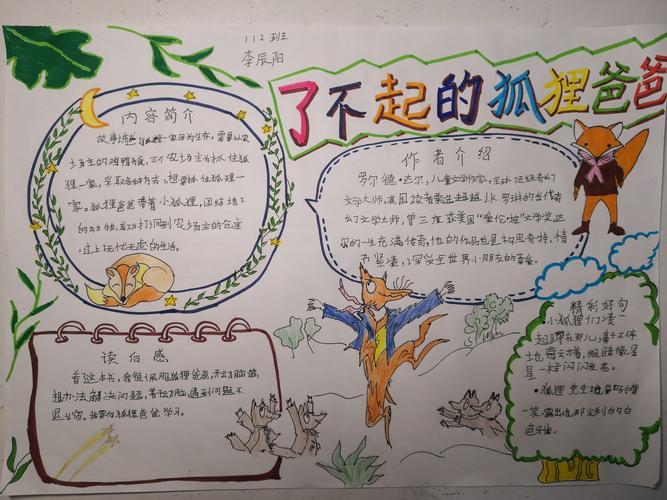 112班
李辰阳
了不起的狐狸爸爸
内容简介
故事讲述狐狸一家因为生存，需要从农
场主的鸡鸭为食，三个农场主为抓住狐
狸一家，采取各种方式，想要抓住狐狸一
家。狐狸爸爸带着小狐狸，团结地下
的动物，成功打洞到农场主的仓库
，过上无忧无虑的生活。
作者介绍
罗尔德·达尔，儿童文学作家，全球顶级奇幻
文学大师，英国读者票选超越J.K.罗琳的当代奇
幻文学大师，曾三度获美国“爱伦·坡”文学奖，达
尔的一生充满传奇，他的作品也是构思奇特，情
节紧凑，深受全世界小朋友的喜爱。
读后感
看这本书，我很佩服狐狸爸爸，开动脑筋，
想办法解决问题，善于动脑，遇到问题不
退缩。我要向狐狸爸爸学习。
精彩好句
小狐狸们凑
起蹲在那儿，鼻子不停
地耸动着，眼睛像星
星一样闪闪发亮。
狐狸先生
一笑，露出他那尖利的白
色牙齿。